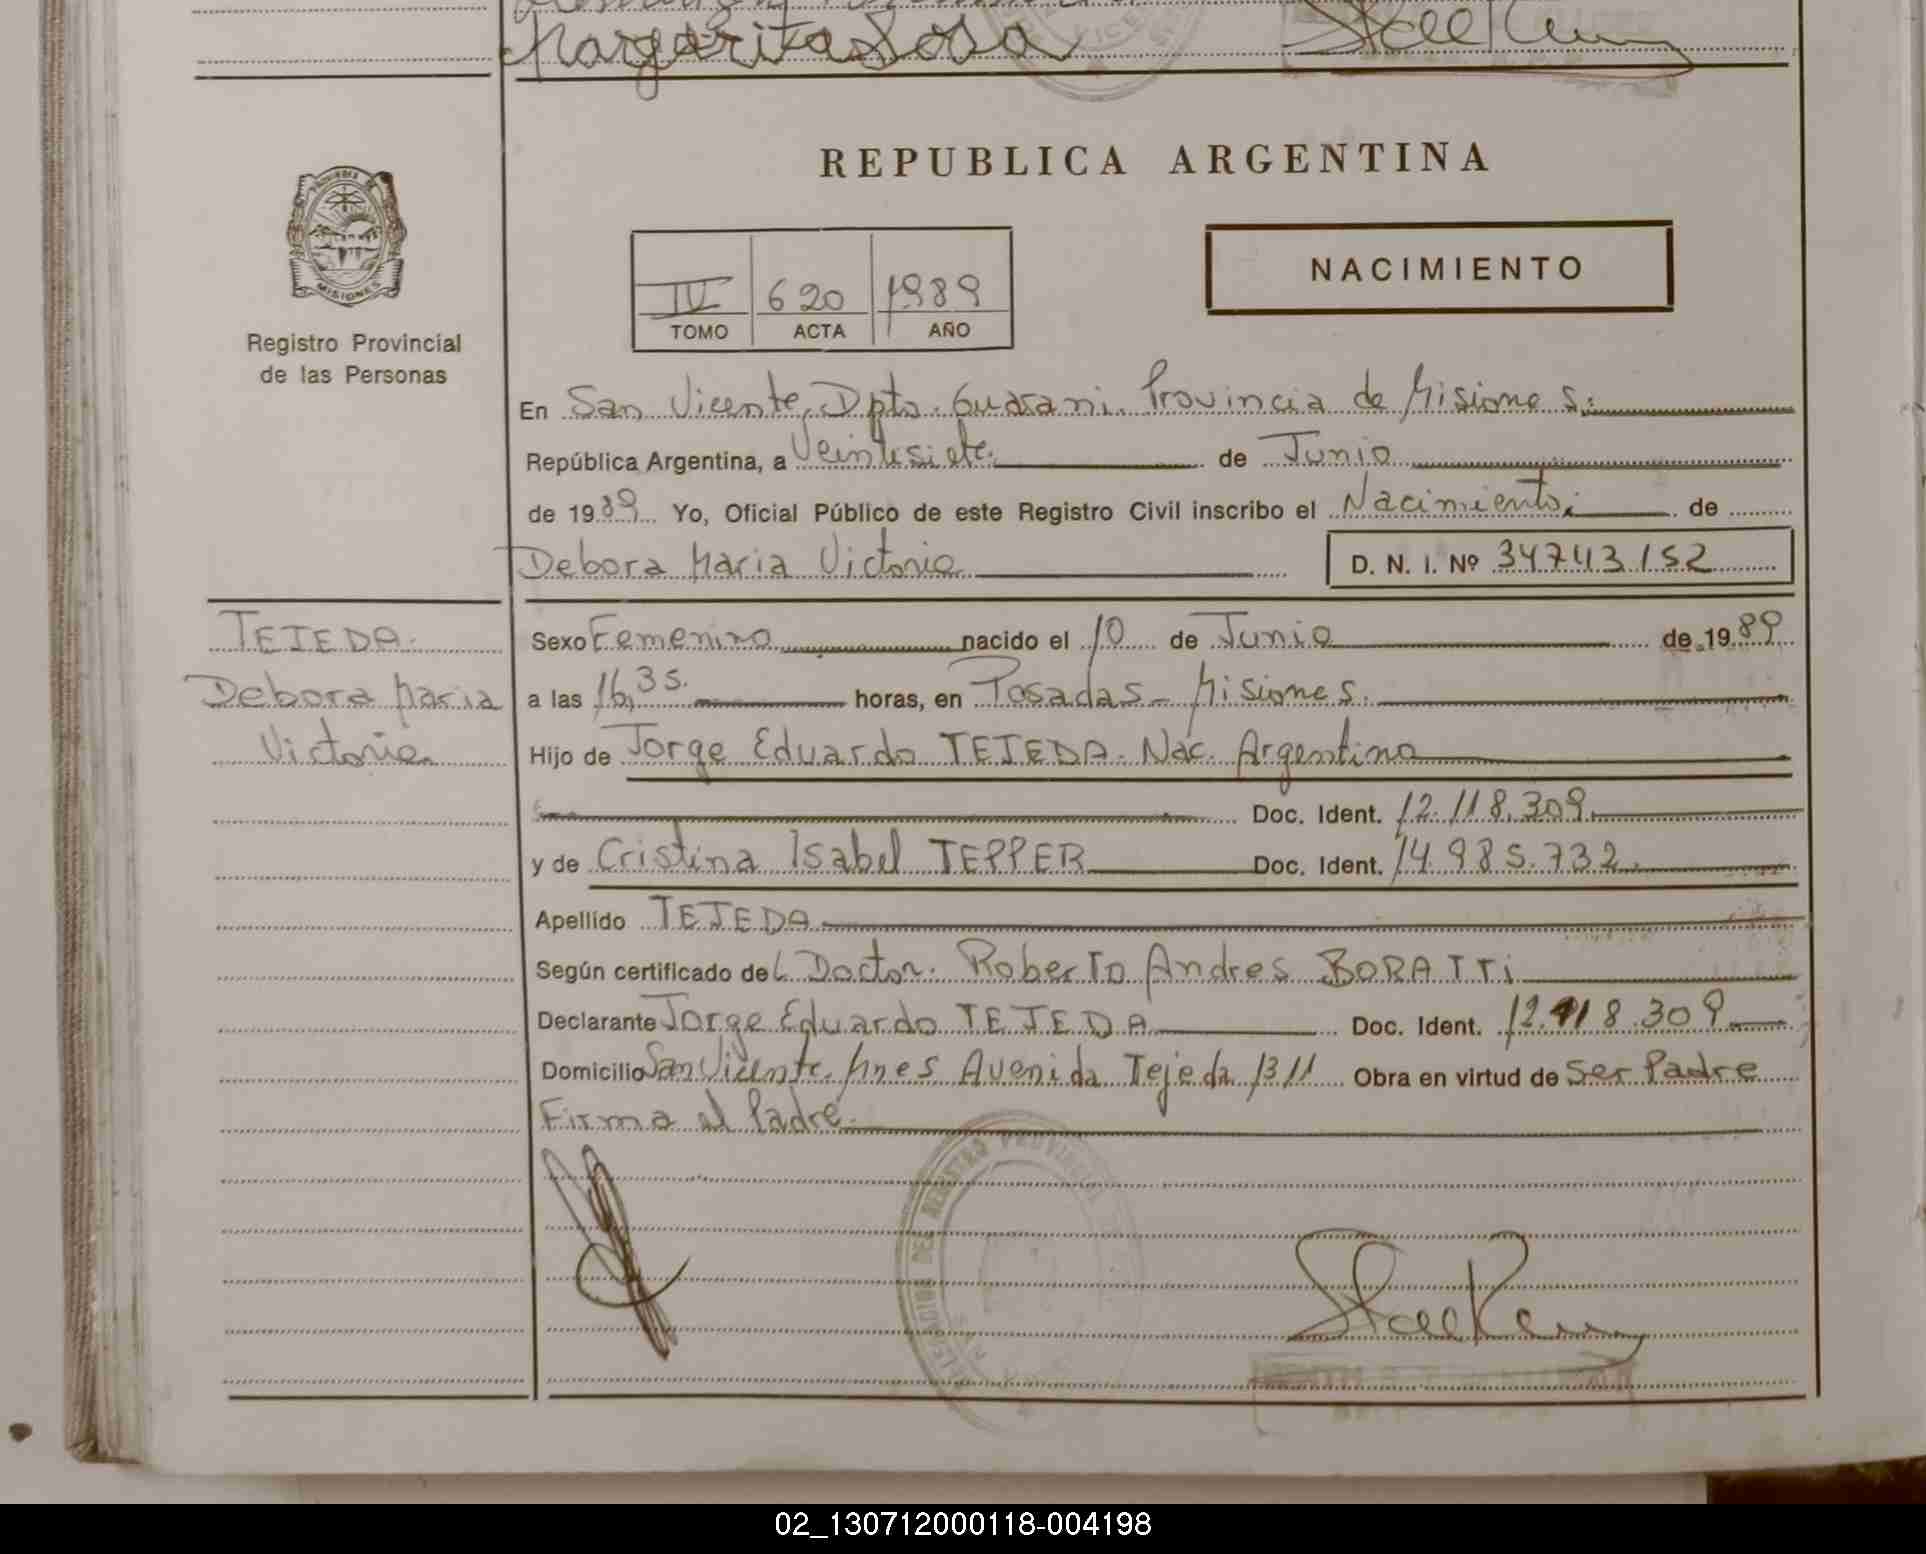 Margarita Sosa
REPUBLICA ARGENTINA
MISIONES
Registro Provincial
de las Personas
IV 620 1989
TOMO ACTA AÑO
NACIMIENTO
En San Vicente, Dpto. Guarani. Provincia de Misiones.
República Argentina, a Veintisiete. de Junio
de 1989 Yo, Oficial Público de este Registro Civil inscribo el Nacimiento. de
Debora Maria Victoria D. N. I. Nº 34743152
TEJEDA.
Debora Maria
Victoria
Sexo Femenino nacido el 10 de Junio de 1989
a las 16,35. horas, en Posadas - Misiones.
Hijo de Jorge Eduardo TEJEDA. Nac. Argentino
Doc. Ident. 12.118.309.
y de Cristina Isabel TEPPER Doc. Ident. 14.985.732.
Apellido TEJEDA
Según certificado del Doctor. Roberto Andres BORATTi
Declarante Jorge Eduardo TEJEDA Doc. Ident. 12.118.309
Domicilio San Vicente. Mnes Avenida Tejeda 1311 Obra en virtud de Ser Padre
Firma el Padre.
02_130712000118-004198